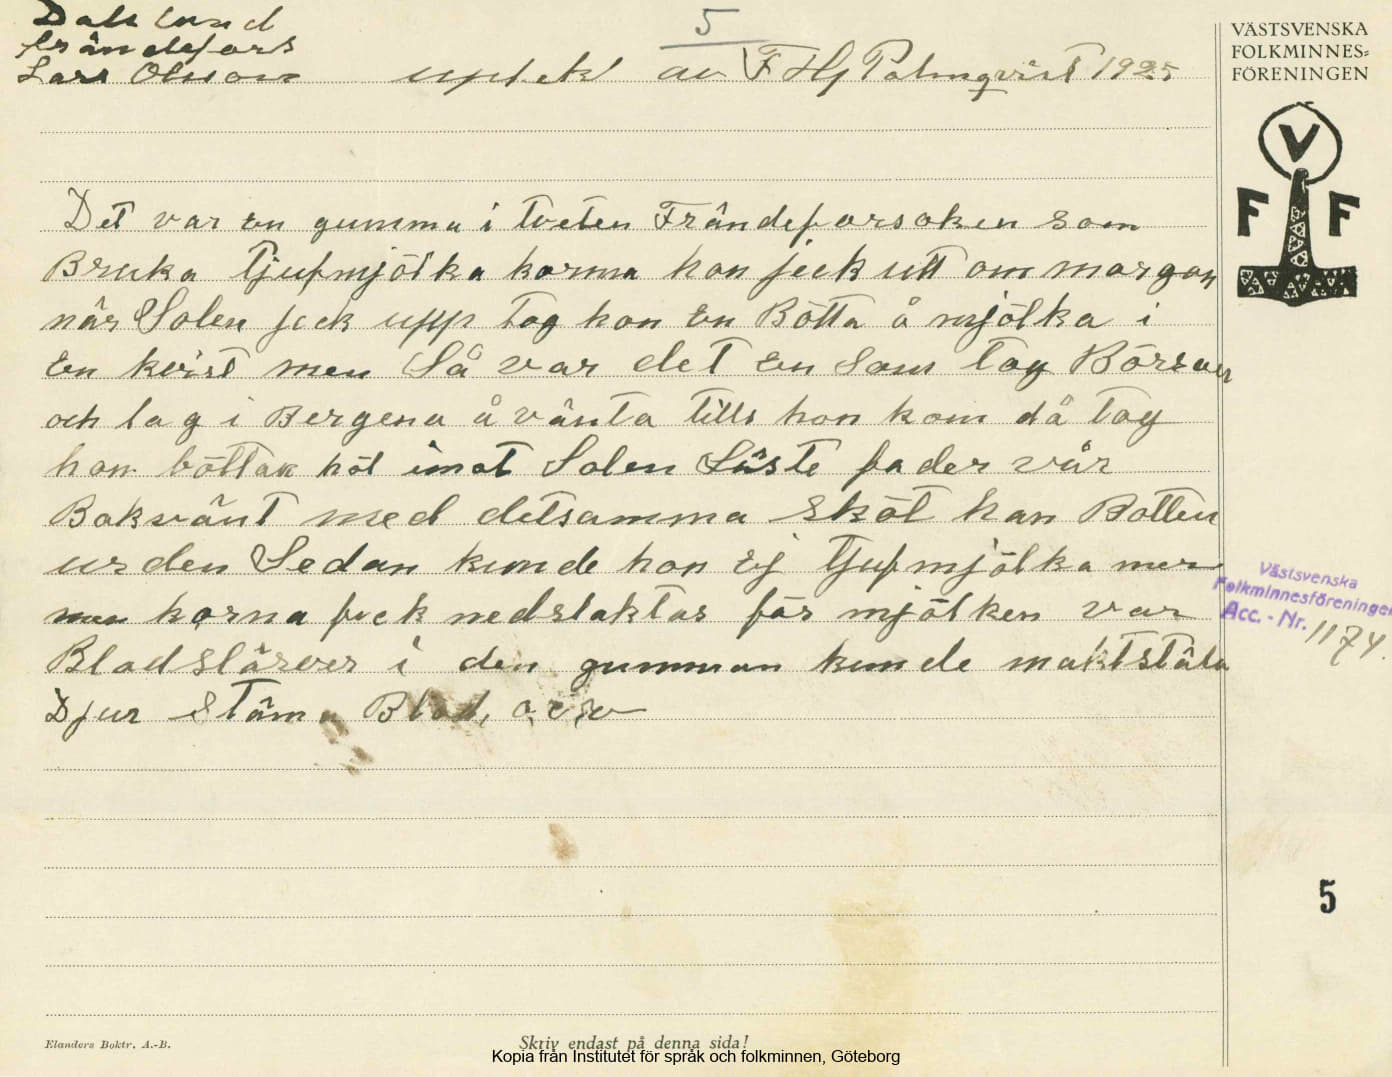 5
Dalsland
Frändefors
Lars Olsson uptek av F Hj Palmqvist 1925
VÄSTSVENSKA
FOLKMINNES-
FÖRENINGEN
V
F F
Det var en gumma i tveten Frändeforsoken som
Bruka Tjufmjölka korma hon jeck utt om morgon
när Solen jeck upp tog hon en Bötta å mjölka i
en kvist men Så var det en som tog Börsan
och lag i Bergena å vänta tills hon kom då tog
hon böttan höl imot Solen Läste fader vår
Bakvänt med detsamma sköt han Botten
ur den Sedan kunde hon ej Tjufmjölka mer
men korna feck nedslaktas för mjölken var
Blod slärver i den gumman kunde maktstäla
Djur Stäma Blod, o, s, v
Västsvenska
Folkminnesföreningen
Acc. - Nr. 1174.
5
Elanders Boktr. A.-B.
Skriv endast på denna sida!
Kopia från Institutet för språk och folkminnen, Göteborg